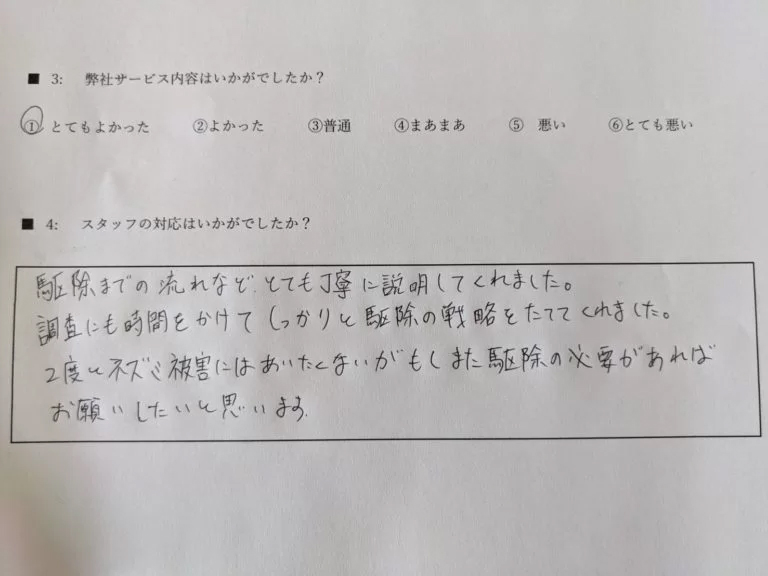 ■ 3: 弊社サービス内容はいかがでしたか？
① とてもよかった ②よかった ③普通 ④まあまあ ⑤ 悪い ⑥とても悪い
■ 4: スタッフの対応はいかがでしたか？
駆除までの流れなど、とても丁寧に説明してくれました。
調査にも時間をかけてしっかりと駆除の戦略をたててくれました。
2度とネズミ被害にはあいたくないがもしまた駆除の必要があれば
お願いしたいと思います。